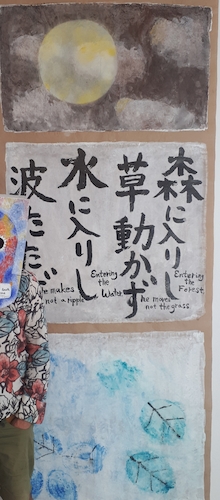 森に入りし
草動かず
水に入りし
波たたず
Entering
the
Forest,
he moves
not the grass
Entering
the
Water,
he makes
not a ripple